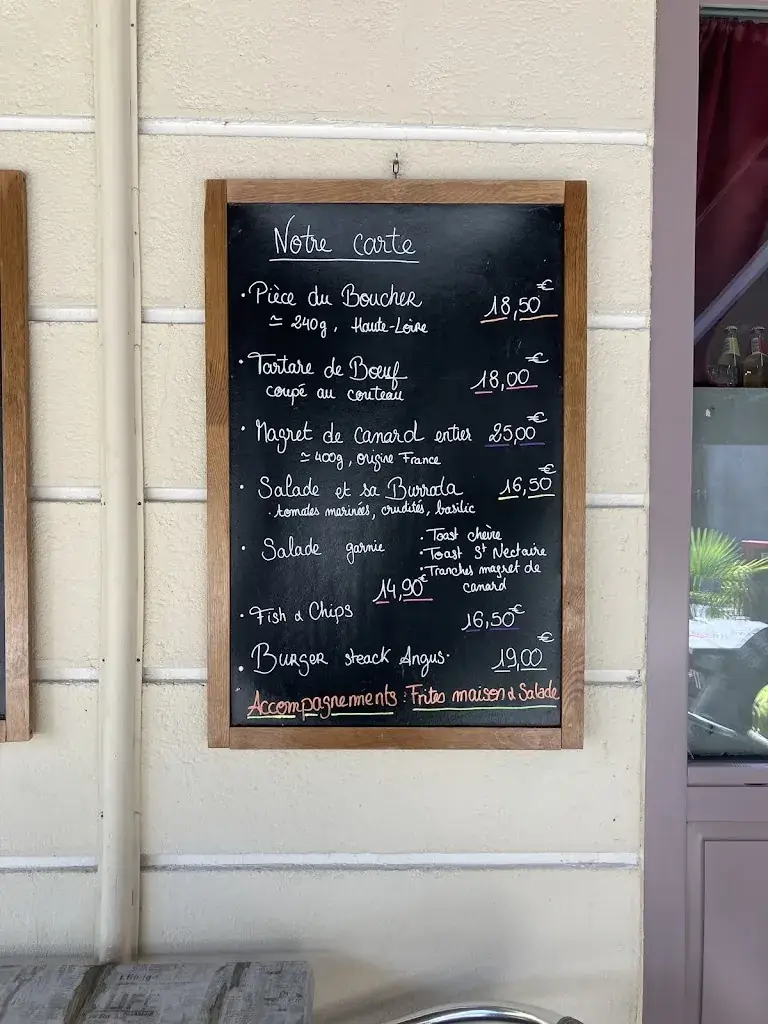 Notre carte
· Pièce du Boucher 18,50€
≃ 240g, Haute-Loire
· Tartare de Bœuf 18,00€
coupé au couteau
· Magret de canard entier 25,00€
≃ 400g, origine France
· Salade et sa Burrata 16,50€
· tomates marinées, crudités, basilic
· Salade garnie
· Toast chèvre
· Toast St Nectaire
· Tranches magret de
canard
14,90€
· Fish & Chips 16,50€
· Burger steack Angus· 19,00€
Accompagnements : Frites maison & Salade